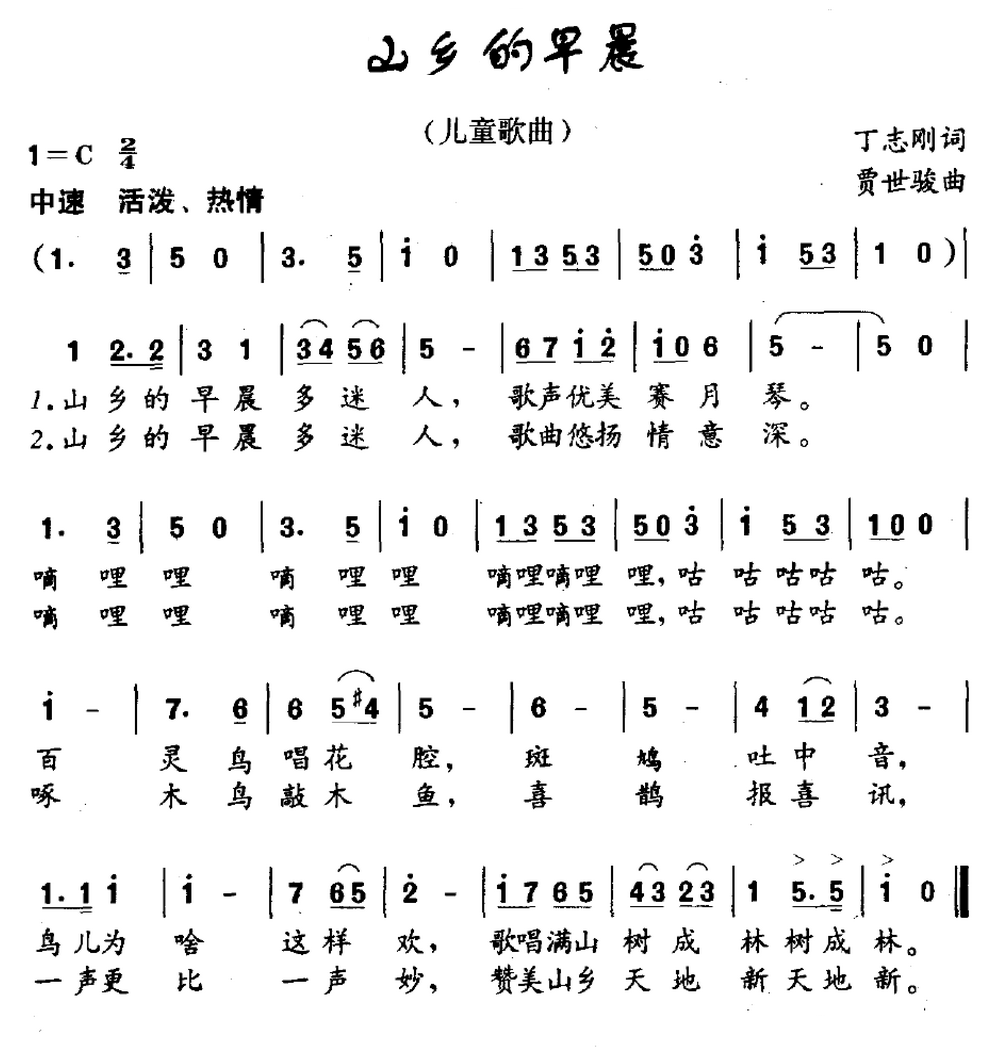 山乡的早晨
（儿童歌曲）
1=C 2/4
丁志刚词
中速 活泼、热情
贾世骏曲
(1. 3 | 5 0 | 3. 5 | i 0 | 1 3 5 3 | 5 0 3̇ | i 5 3 | 1 0 )|
1 2. 2 | 3 1 | 3 4 5 6 | 5 - | 6 7 i 2̇ | i 0 6 | 5 - | 5 0 |
1.山乡的早晨多迷人，歌声优美赛月琴。
2.山乡的早晨多迷人，歌曲悠扬情意深。
1. 3 | 5 0 | 3. 5 | i 0 | 1 3 5 3 | 5 0 3̇ | i 5 3 | 1 0 0 |
嘀哩哩 嘀哩哩 嘀哩嘀哩哩，咕咕咕咕咕。
嘀哩哩 嘀哩哩 嘀哩嘀哩哩，咕咕咕咕咕。
i - | 7. 6 | 6 5 #4 | 5 - | 6 - | 5 - | 4 1 2 | 3 - |
百灵鸟唱花腔，斑鸠吐中音，
啄木鸟敲木鱼，喜鹊报喜讯，
1. 1 i | i - | 7 6 5 | 2̇ - | i 7 6 5 | 4 3 2 3 | 1 5. 5 | i 0 ‖
鸟儿为啥这样欢，歌唱满山树成林树成林。
一声更比一声妙，赞美山乡天地新天地新。